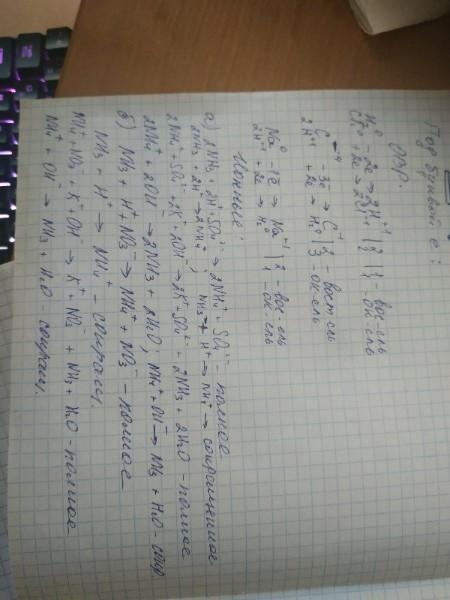 ОВР.
H₂⁰ - 2e → 2H⁺¹ | 2 | 1 - вос-ль
Cl₂⁰ + 2e → 2Cl⁻¹ | 2 | 1 - ок-ль
- 3e → | 2 - восст-ль
2H⁺¹ + 2e → H₂⁰ | 3 - ок-ль
Na⁰ - 1e → Na⁺¹ | 2 - вос-ль
2H⁺¹ + 2e → H₂⁰ | 1 - ок-ль
Ионные:
а) 2NH₃ + 2H⁺ + SO₄²⁻ → 2NH₄⁺ + SO₄²⁻ - полное
2NH₃ + 2H⁺ → 2NH₄⁺; NH₃ + H⁺ → NH₄⁺ - сокращенное
2NH₄⁺ + SO₄²⁻ + 2K⁺ + 2OH⁻ → 2K⁺ + SO₄²⁻ + 2NH₃ + 2H₂O - полное
2NH₄⁺ + 2OH⁻ → 2NH₃ + 2H₂O; NH₄⁺ + OH⁻ → NH₃ + H₂O - сокр
б) NH₃ + H⁺ + NO₃⁻ → NH₄⁺ + NO₃⁻ - полное
NH₃ + H⁺ → NH₄⁺ - сокращ.
NH₄⁺ + NO₃⁻ + K⁺ + OH⁻ → K⁺ + NO₃⁻ + NH₃ + H₂O - полное
NH₄⁺ + OH⁻ → NH₃ + H₂O - сокращ.